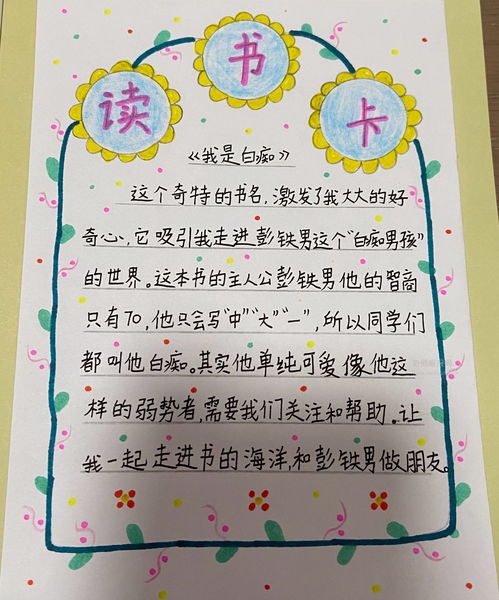 读书卡
《我是白痴》
这个奇特的书名,激发了我大大的好
奇心,它吸引我走进彭铁男这个“白痴男孩”
的世界。这本书的主人公彭铁男他的智商
只有70,他只会写“中”“大”“一”,所以同学们
都叫他白痴。其实他单纯可爱像他这
样的弱势者,需要我们关注和帮助。让
我一起走进书的海洋,和彭铁男做朋友。